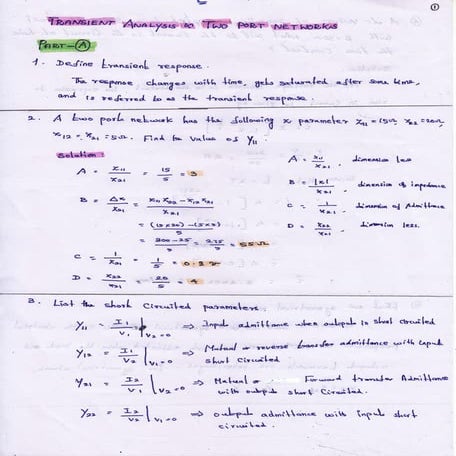 ①
TRANSIENT ANALYSIS & TWO PORT NETWORKS
PART-(A)
1. Define transient response.
The response changes with time, gets saturated after some time,
and is referred to as the transient response.
2. A two port network has the following z parameter Z11 = 15Ω, Z22 = 20Ω,
Z12 = Z21 = 5Ω. Find the value of Y11
Solution:
A = Z11/Z21 = 15/5 = 3
B = ΔZ/Z21 = Z11 Z22 - Z12 Z21/Z21
= (15×20) - (5×5)/5
= 300-25/5 = 275/5 = 55Ω
C = 1/Z21 = 1/5 = 0.2
D = Z22/Z21 = 20/5 = 4
A = Z11/Z21, dimension less
B = |Z|/Z21, dimension of impedance
C = 1/Z21, dimension of Admittance
D = Z22/Z21, dimension less.
3. List the short Circuited parameters.
Y11 = I1/V1 ⇒ Input admittance when output is short circuited
Y12 = I1/V2 | V1=0 ⇒ Mutual or reverse transfer admittance with input
short Circuited
Y21 = I2/V1 | V2=0 ⇒ Mutual or Forward transfer Admittance
with output short Circuited.
Y22 = I2/V2 | V1=0 ⇒ output admittance with input short
circuited.